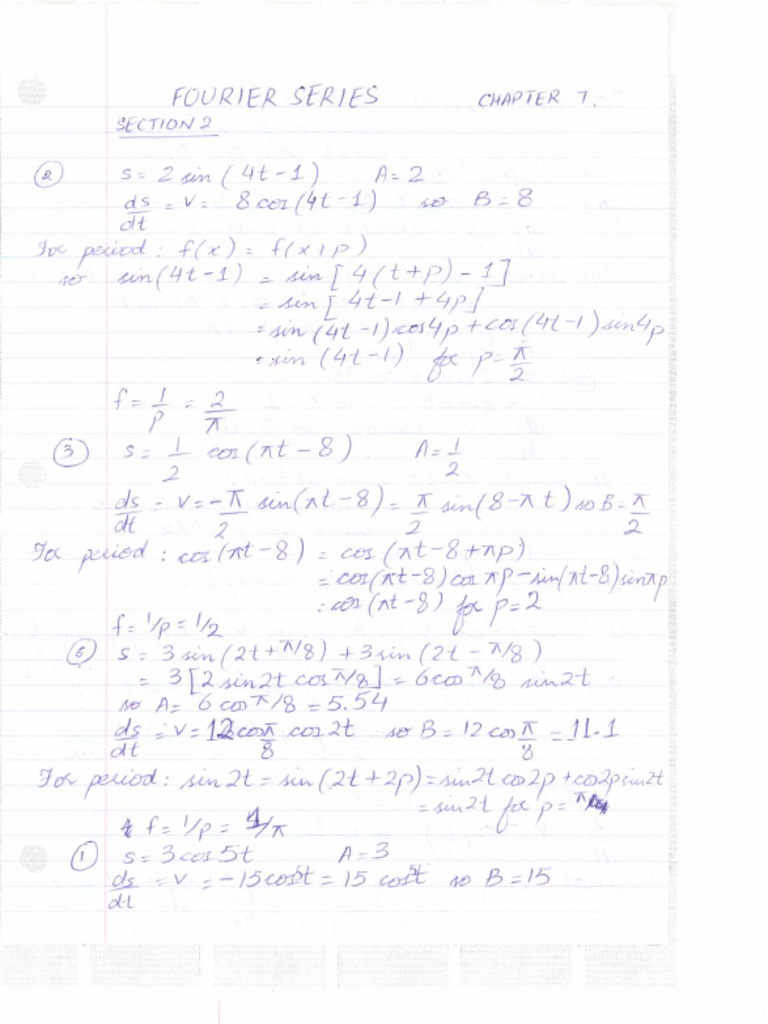 FOURIER SERIES CHAPTER 7.
SECTION 2
② s = 2 sin (4t-1) A = 2
ds/dt = v = 8 cos (4t-1) so B = 8
For period : f(x) = f(x+p)
so sin(4t-1) = sin [4(t+p)-1]
= sin [4t-1+4p]
= sin (4t-1) cos4p + cos(4t-1) sin4p
= sin (4t-1) for p = π/2
f = 1/p = 2/π
③ s = 1/2 cos(πt-8). A = 1/2
ds/dt = v = -π/2 sin(πt-8) = π/2 sin(8-πt) so B = π/2
For period : cos(πt-8) = cos (πt-8+πp)
= cos(πt-8) cos πp - sin(πt-8) sinπp
: cos (πt-8) for p = 2
f = 1/p = 1/2
⑥ s = 3 sin (2t+π/8) + 3 sin (2t - π/8)
= 3 [2 sin2t cos π/8] = 6cos π/8 sin2t
so A = 6 cos π/8 = 5.54
ds/dt = v = 12 cos π/8 cos 2t so B = 12 cos π/8 = 11.1
For period : sin2t = sin (2t+2p) = sin2t cos2p + cos2p sin2t
= sin2t for p = π
f = 1/p = 1/π
① s = 3 cos 5t A = 3
ds/dt = v = -15 cos5t = 15 cos5t so B = 15